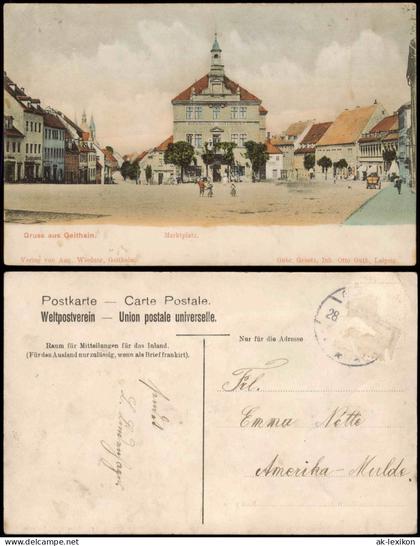 Gruss aus Geithain.
Marktplatz.
Verlag von Aug. Wiedner, Geithain.
Gebr. Graetz, Inh. Otto Guth, Leipzig.
Postkarte — Carte Postale.
Weltpostverein — Union postale universelle.
Raum für Mitteilungen für das Inland.
(Für das Ausland nur zulässig, wenn als Brief frankirt).
Nur für die Adresse
28
Frl.
Emma Notte
Amerika-Mulde
www.ak-ansichtskarten.de
ak-lexikon